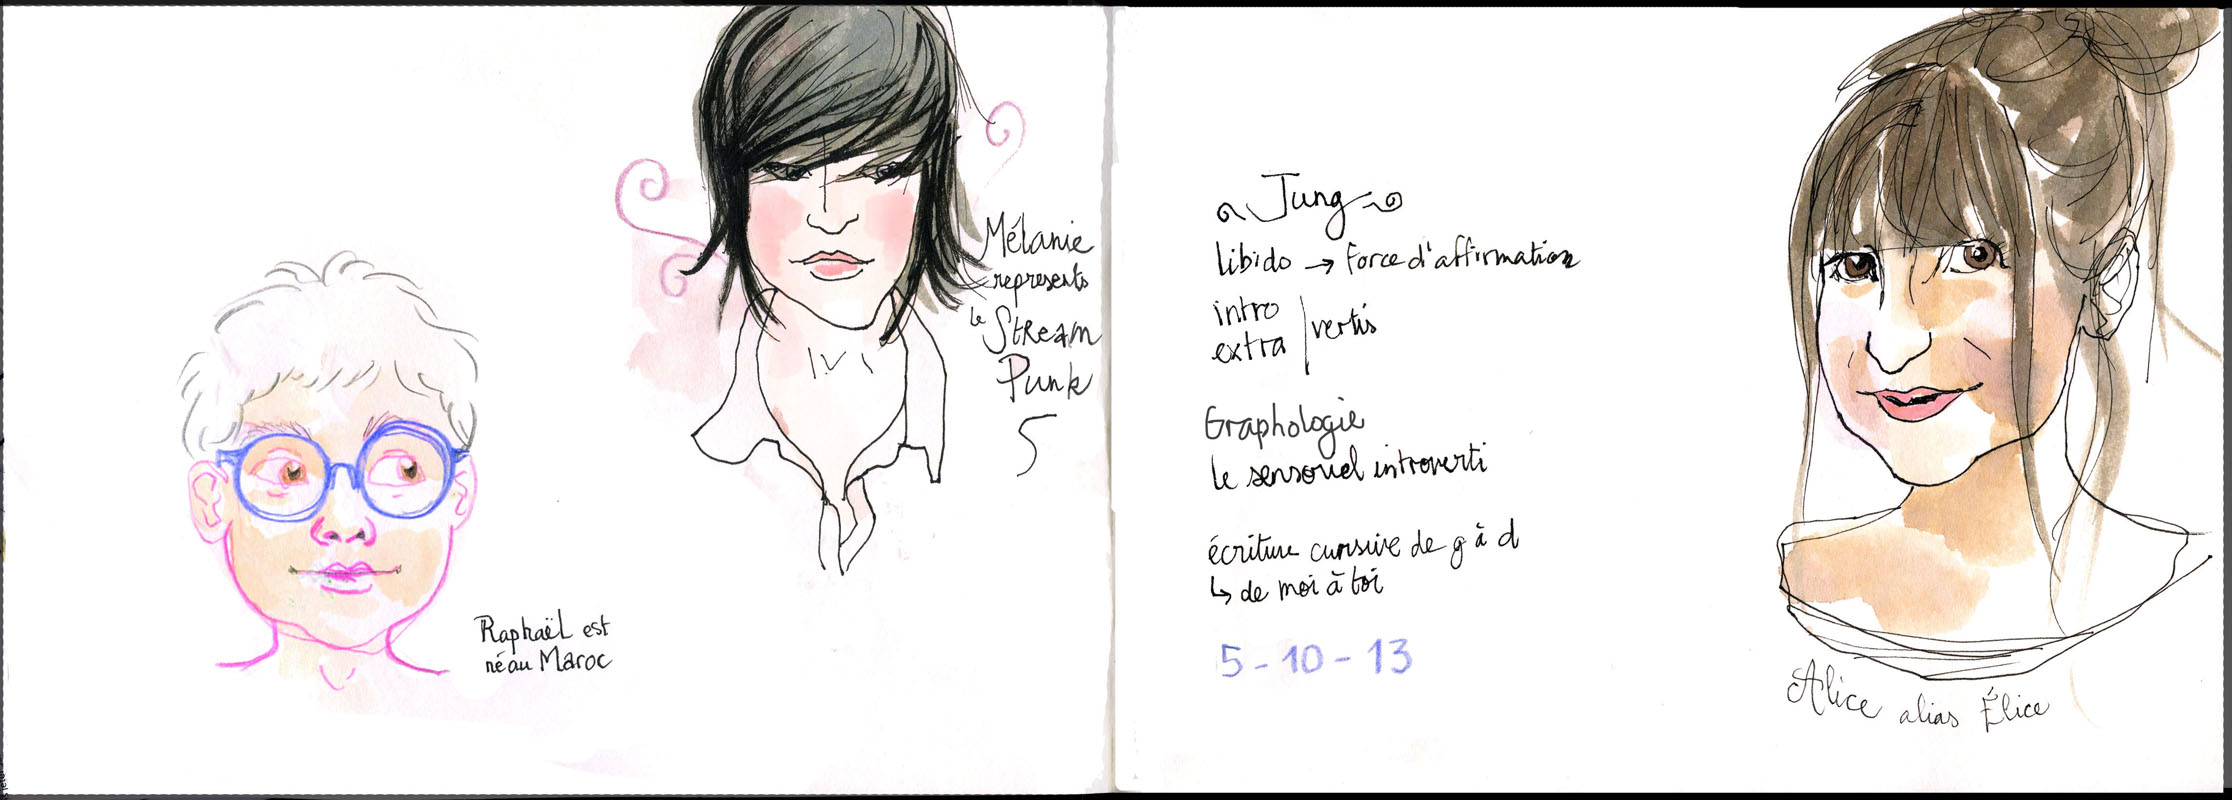 Raphaël est
né au Maroc
Mélanie
represents
le Stream
Punk
5
Jung
libido → force d'affirmation
intro
extra | vertis
Graphologie
le sensoriel introverti
écriture cursive de g à d
↳ de moi à toi
5 - 10 - 13
Alice alias Élice